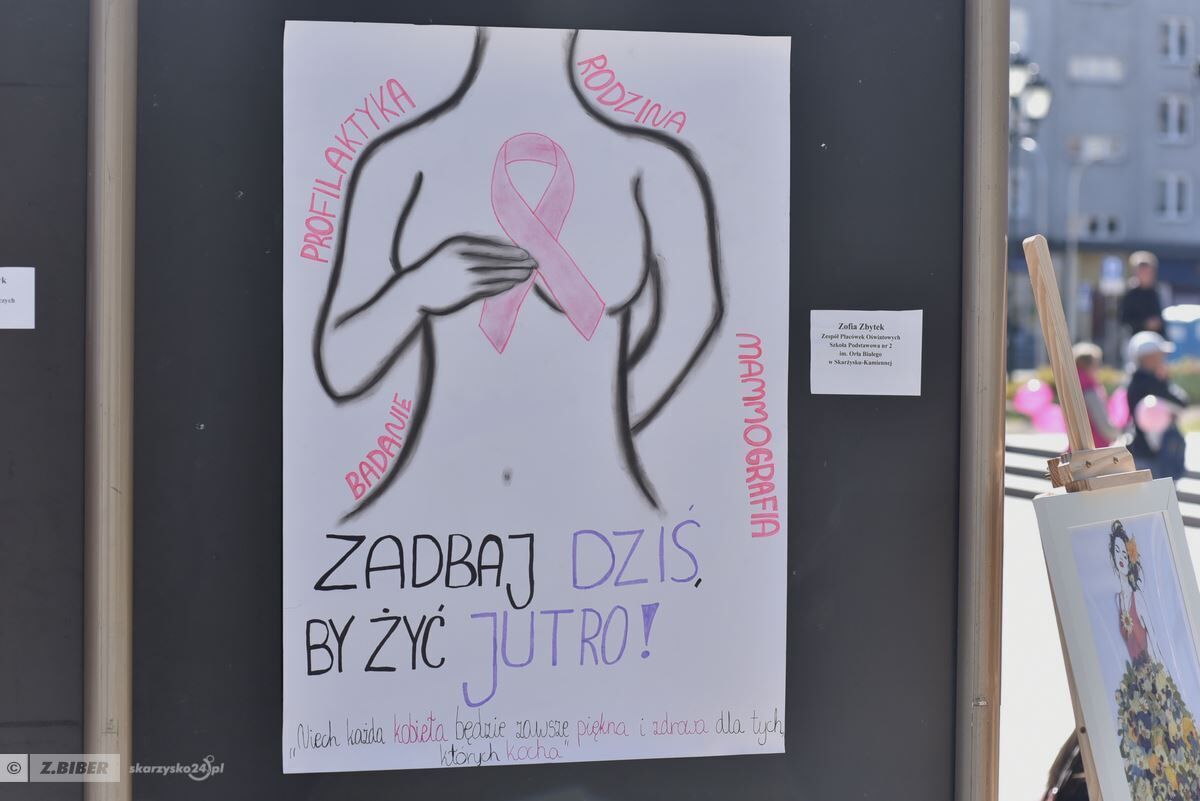 PROFILAKTYKA
RODZINA
BADANIE
MAMMOGRAFIA
ZADBAJ DZIŚ,
BY ŻYĆ JUTRO!
„Niech każda kobieta będzie zawsze piękna i zdrowa dla tych,
których kocha”
Zofia Zbytek
Zespół Placówek Oświatowych
Szkoła Podstawowa nr 2
im. Orła Białego
w Skarżysku-Kamiennej
© Z.BIBER skarzysko24.pl